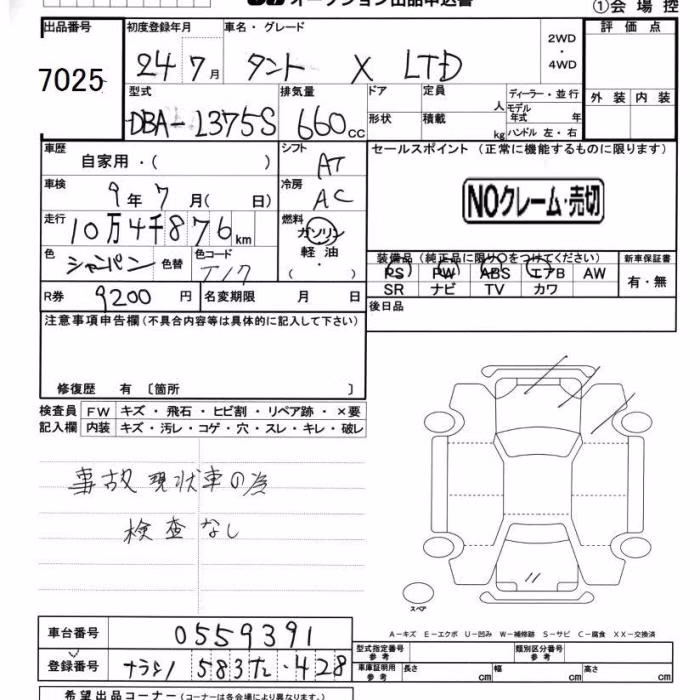 オークション出品申込書
①会場控
出品番号 初度登録年月 車名・グレード 2WD ・ 4WD 評価点
7025 24 7月 タント X LTD
型式 排気量 ドア 定員 人 ディーラー・並行 外装 内装
モデル年式 年
DBA-L375S 660cc 形状 積載 kg ハンドル 左・右
車歴 自家用・( ) シフト AT セールスポイント (正常に機能するものに限ります)
車検 9年7月( 日) 冷房 AC NOクレーム・売切
走行 10万4千876km 燃料 ガソリン・軽油・( )
色 シャンパン 色替 色コード T17 装備品 (純正品に限り○をつけてください) 新車保証書
PS PW ABS エアB AW 有・無
SR ナビ TV カワ
R券 9200円 名変期限 月 日 後日品
注意事項申告欄(不具合内容等は具体的に記入して下さい)
修復歴 有 〔箇所 〕
検査員 FW キズ・飛石・ヒビ割・リペア跡・×要
記入欄 内装 キズ・汚レ・コゲ・穴・スレ・キレ・破レ
事故現状車の為
検査なし
スペア
A-キズ E-エクボ U-凹み W-補修跡 S-サビ C-腐食 XX-交換済
車台番号 0559391
型式指定番号 参考 類別区分番号 参考
登録番号 583た・428
車庫証明用 参考 長さ cm 幅 cm 高さ cm
希望出品コーナー(コーナーは各会場により異なります。)